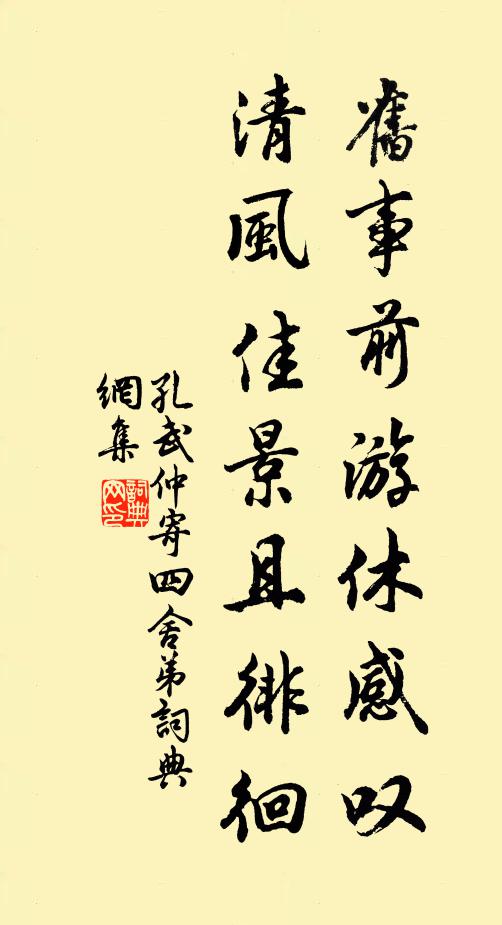 舊事前游休感叹
清風佳景且徘徊
孔武仲寄四舍弟詞典
網集
詞典
网印